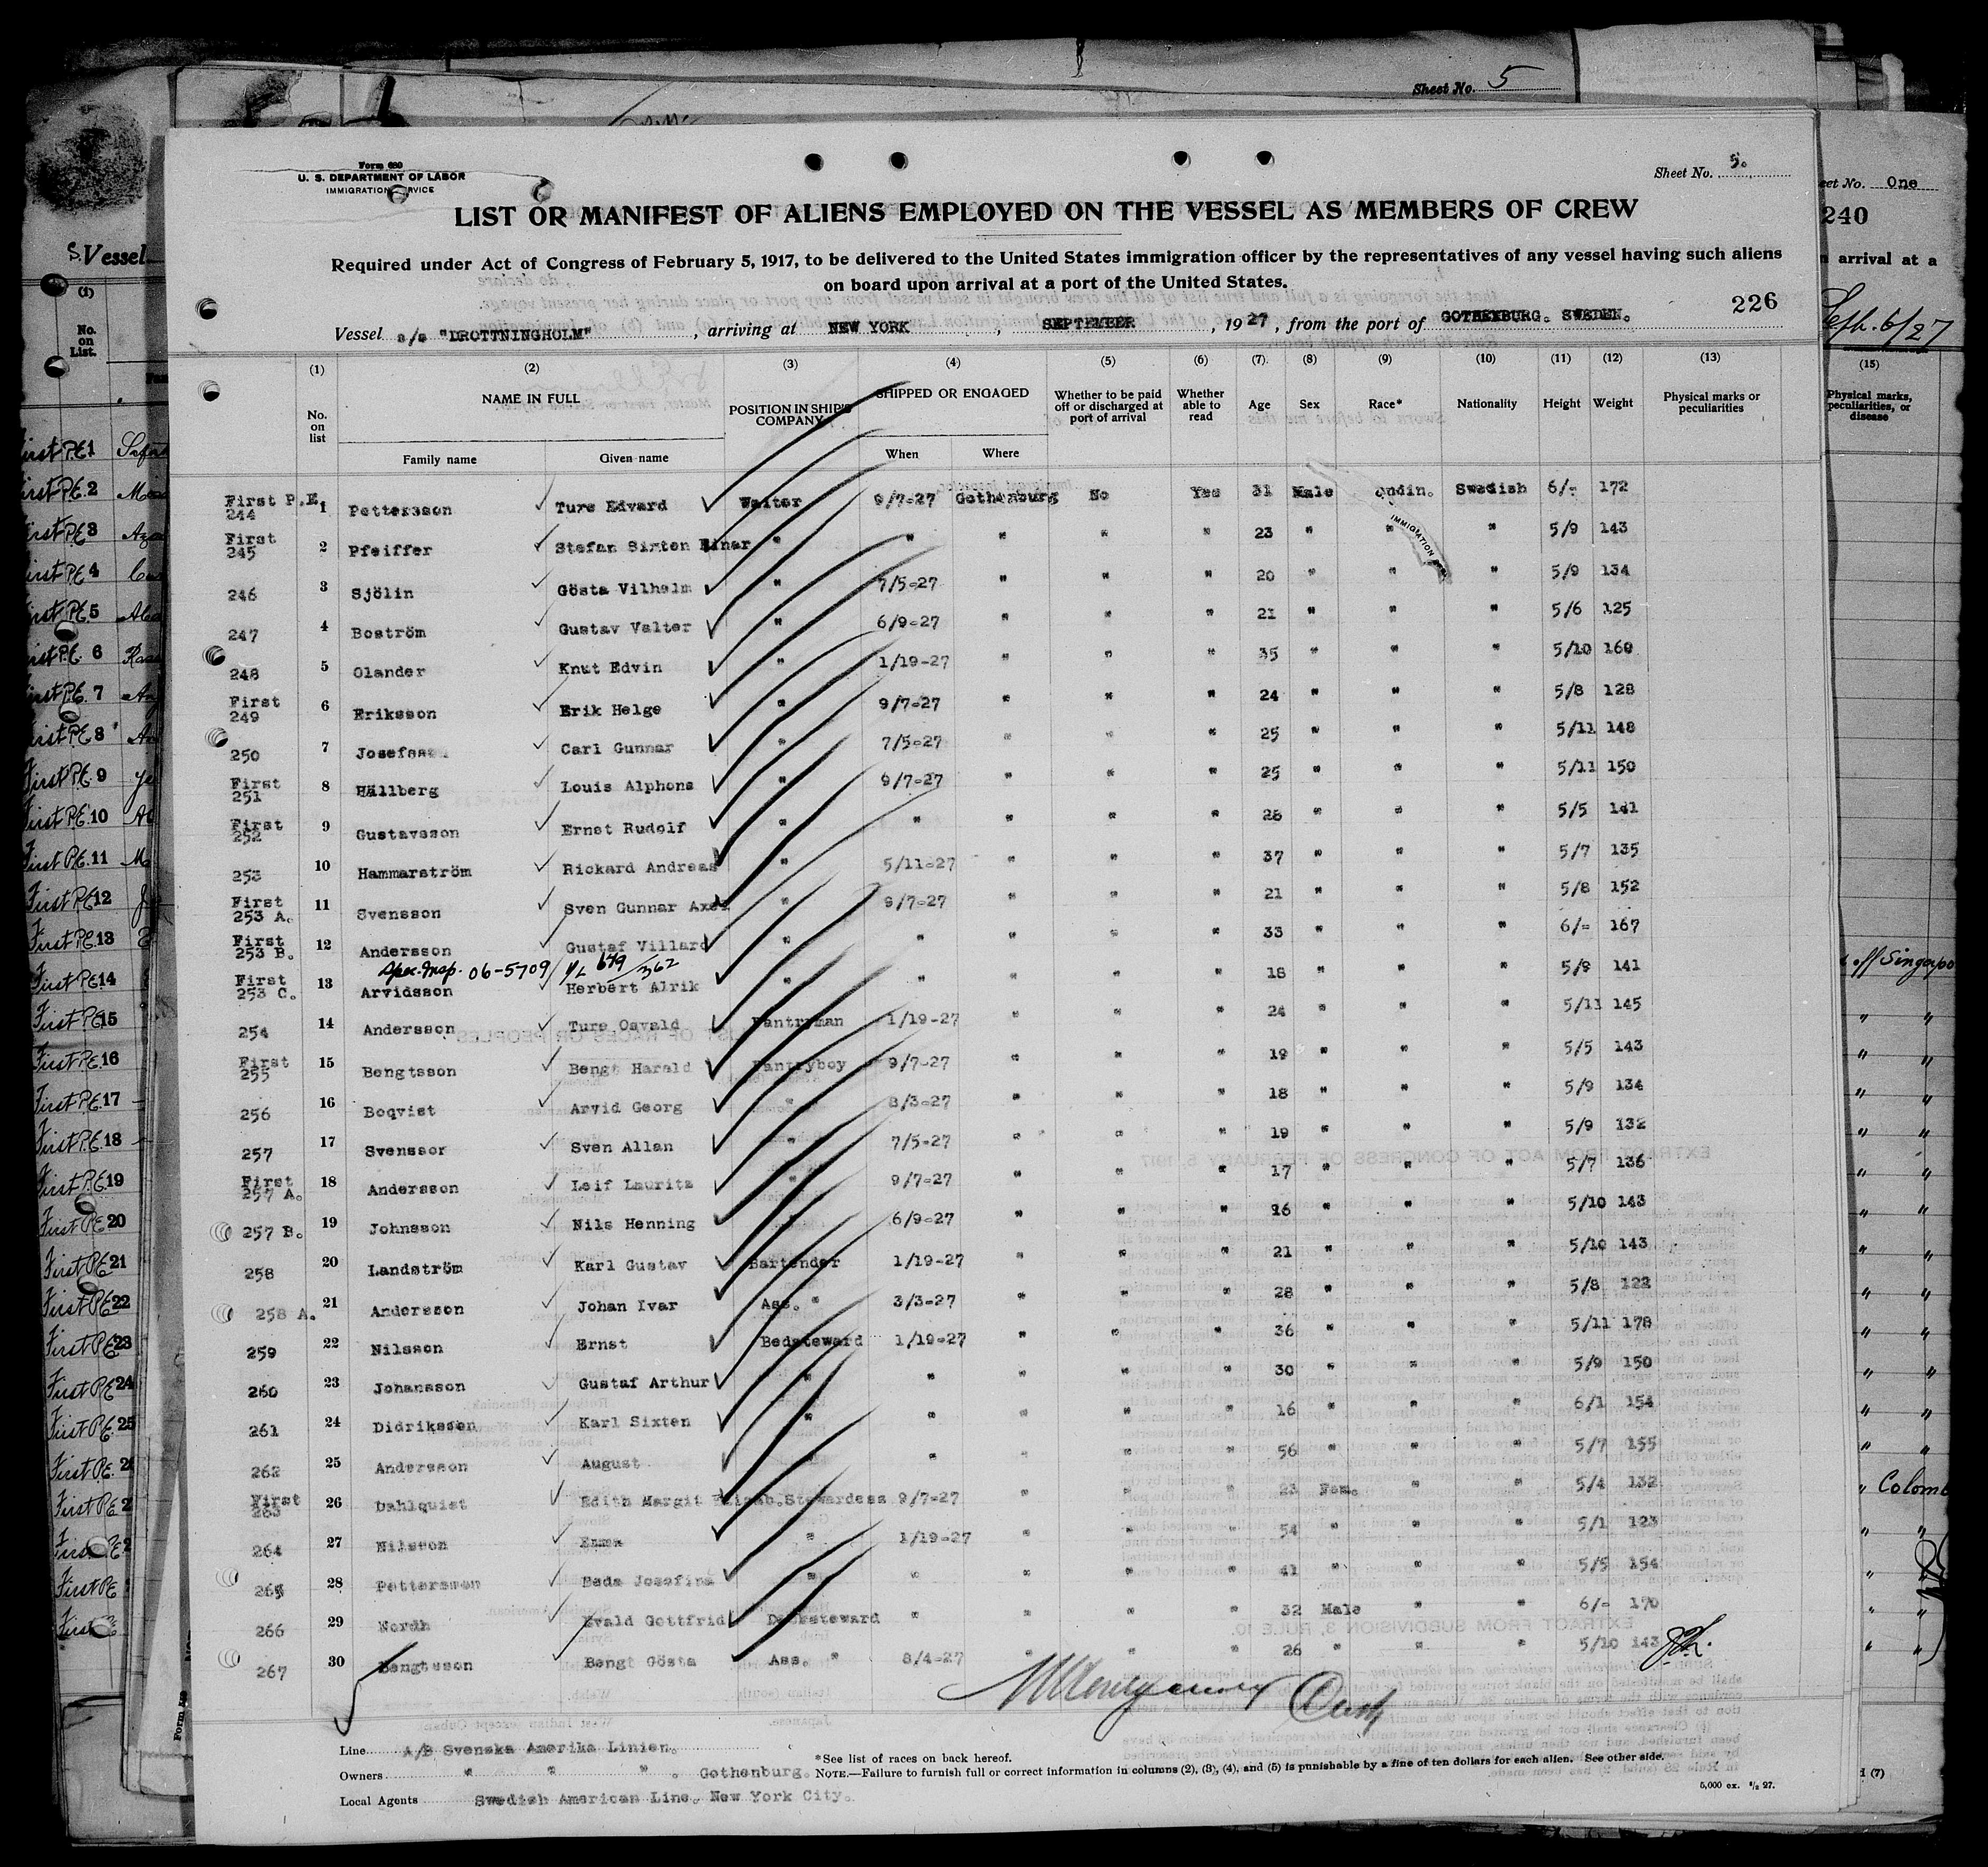 Sheet No. 5
Form 680
U. S. DEPARTMENT OF LABOR
IMMIGRATION SERVICE
Sheet No. 5.
LIST OR MANIFEST OF ALIENS EMPLOYED ON THE VESSEL AS MEMBERS OF CREW
Required under Act of Congress of February 5, 1917, to be delivered to the United States immigration officer by the representatives of any vessel having such aliens
on board upon arrival at a port of the United States.
226
Vessel s/s "DROTTNINGHOLM", arriving at NEW YORK, SEPTEMBER, 1927, from the port of GOTHENBURG. SWEDEN.
(1) (2) (3) (4) (5) (6) (7) (8) (9) (10) (11) (12) (13)
No. on list NAME IN FULL POSITION IN SHIP'S COMPANY SHIPPED OR ENGAGED Whether to be paid off or discharged at port of arrival Whether able to read Age Sex Race* Nationality Height Weight Physical marks or peculiarities
Family name Given name When Where
First P.E. 244 1 Pettersson Ture Edvard Waiter 9/7-27 Gothenburg No Yes 31 Male andin. Swedish 6/- 172
First 245 2 Pfeiffer Stefan Sixten Einar " " " " " 23 " " " 5/9 143
246 3 Sjölin Gösta Vilhelm " 7/5-27 " " " 20 " " " 5/9 134
247 4 Boström Gustav Valter " 6/9-27 " " " 21 " " " 5/6 125
248 5 Olander Knut Edvin " 1/19-27 " " " 35 " " " 5/10 160
First 249 6 Eriksson Erik Helge " 9/7-27 " " " 24 " " " 5/8 128
250 7 Josefsson Carl Gunnar " 7/5-27 " " " 25 " " " 5/11 148
First 251 8 Hällberg Louis Alphons " 9/7-27 " " " 25 " " " 5/11 150
First 252 9 Gustavsson Ernst Rudolf " " " " " 28 " " " 5/5 141
253 10 Hammarström Rickard Andreas " 5/11-27 " " " 37 " " " 5/7 135
First 253 A. 11 Svensson Sven Gunnar Axel " 9/7-27 " " " 21 " " " 5/8 152
First 253 B. 12 Andersson Gustaf Villard " " " " " 33 " " " 6/- 167
Spec. Insp. 06-5709 / 679/362
First 253 C. 13 Arvidsson Herbert Alrik " " " " " 18 " " " 5/9 141
254 14 Andersson Ture Osvald Pantryman 1/19-27 " " " 24 " " " 5/11 145
First 255 15 Bengtsson Bengt Harald Pantryboy 9/7-27 " " " 19 " " " 5/5 143
256 16 Boqvist Arvid Georg " 8/3-27 " " " 18 " " " 5/9 134
257 17 Svensson Sven Allan " 7/5-27 " " " 19 " " " 5/9 132
First 257 A. 18 Andersson Leif Lauritz " 9/7-27 " " " 17 " " " 5/7 136
257 B. 19 Johnsson Nils Henning " 6/9-27 " " " 26 " " " 5/10 143
258 20 Landström Karl Gustav Bartender 1/19-27 " " " 21 " " " 5/10 143
258 A. 21 Andersson Johan Ivar Ass. " 3/3-27 " " " 28 " " " 5/8 122
259 22 Nilsson Ernst Bedsteward 1/19-27 " " " 36 " " " 5/11 178
260 23 Johansson Gustaf Arthur " " " " " 30 " " " 5/9 150
261 24 Didriksson Karl Sixten " " " " " 16 " " " 6/1 154
262 25 Andersson August " " " " " 56 " " " 5/7 155
First 263 26 Dahlquist Edith Margit Elisab. Stewardess 9/7-27 " " " 23 Fem. " " 5/4 132
264 27 Nilsson Emma " 1/19-27 " " " 54 " " " 5/1 123
265 28 Pettersson Beda Josefina " " " " " 41 " " " 5/5 154
266 29 Nordh Evald Gottfrid Decksteward " " " " 32 Male " " 6/- 170
267 30 Bengtsson Bengt Gösta Ass. " 8/4-27 " " " 26 " " " 5/10 143
Line A/B Svenska Amerika Linien.
Owners " " " . Gothenburg.
Local Agents Swedish American Line. New York City.
*See list of races on back hereof.
NOTE.—Failure to furnish full or correct information in columns (2), (3), (4), and (5) is punishable by a fine of ten dollars for each alien. See other side.
5,000 ex. 1/2 27.
Vessel
(1)
No. on List.
First P.E. 1
First P.E. 2
First P.E. 3
First P.E. 4
First P.E. 5
First P.E. 6
First P.E. 7
First P.E. 8
First P.E. 9
First P.E. 10
First P.E. 11
First P.E. 12
First P.E. 13
First P.E. 14
First P.E. 15
First P.E. 16
First P.E. 17
First P.E. 18
First P.E. 19
First P.E. 20
First P.E. 21
First P.E. 22
First P.E. 23
First P.E. 24
First P.E. 25
eet No. One
240
arrival at a
6/27
(15)
Physical marks, peculiarities, or disease